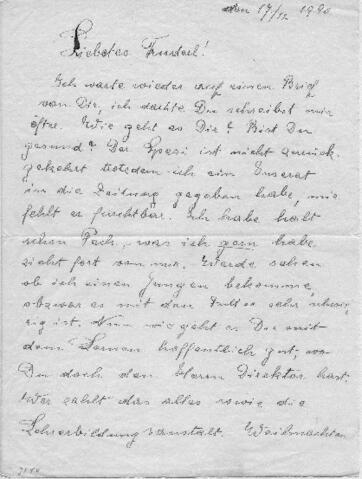 den 17/12 1920
Liebstes !
Ich warte wieder auf einen Brief
von Dir, ich dachte Du schreibst mir
öfter. Wie geht es Dir? Bist Du
gesund? Der Spezi ist nicht zurück-
gekehrt trotzdem ich ein Inserat
in die Zeitung gegeben habe, mir
fehlt er furchtbar. Ich habe halt
schon Pech, was ich gern habe
zieht fort von mir. Werde sehen
ob ich einen Jungen bekomme,
obzwar es mit dem sehr schwie
rig ist. Nun wie geht es Dir mit
dem Lernen hoffentlich gut, wo
Du doch den Herrn Direktor hast.
Wer zahlt das alles sowie die
Lehrerbildungsanstalt. Weihnachten